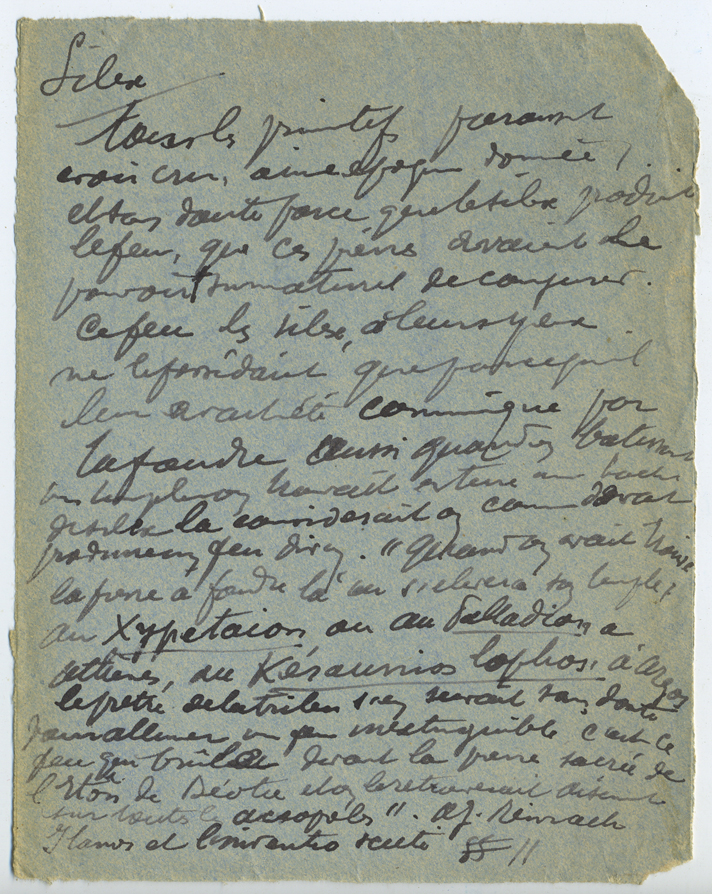 Silex
Tous les primitifs paraissent
avoir cru, a une époque donnée,
et sans doute parce que le silex produit
le feu, que ces pierres avaient le
pouvoir surnaturel de conjurer.
Ce feu les silex, à leurs yeux
ne le possédaient que parce qu'il
leur avait été communiqué par
la foudre aussi quand on batissait
un temple on trouvait en terre une hache
de silex la considerait on comme devant
produire un feu divin. "Quand on avait trouvé
la pierre à foudre là où s'elevera son temple,
au Xypetaion ou au Palladion, a
athènes, au Kéraunios lophos, à Argos
le pretre de la tribu s'en servait sans doute
pour allumer un feu inextinguible c'est ce
feu qui brûlait devant la pierre sacrée de
l'Iton de Béotie et on le retrouverait
sur toutes les acropoles". A.J. Reinach
Itanos et l'inventio scuti §§ //